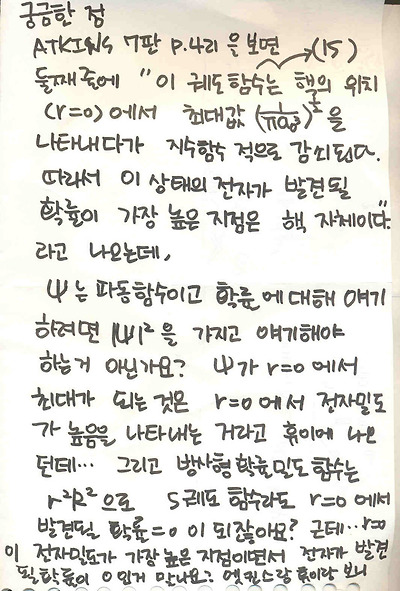 궁금한 점
ATKINS 7판 P.421 을 보면 (1s)
둘째줄에 " 이 궤도함수는 핵의 위치
(r=0) 에서 최대값 (1/πa₀³)^½ 을
나타내다가 지수함수 적으로 감쇠된다.
따라서 이 상태의 전자가 발견될
확률이 가장 높은 지점은 핵 자체이다."
라고 나오는데,
Ψ는 파동함수이고 확률에 대해 얘기
하려면 |Ψ|² 을 가지고 얘기해야
하는거 아닌가요? Ψ가 r=0 에서
최대가 되는 것은 r=0 에서 전자밀도
가 높음을 나타내는 거라고 휴이에 나오
던데… 그리고 방사형확률밀도 함수는
r²R² 으로 s궤도 함수라도 r=0 에서
발견될 확률=0 이 되잖아요? 근데… r=0
이 전자밀도가 가장 높은 지점이면서 전자가 발견
될 확률이 0 인거 맞나요? 앳킨스랑 휴이랑 보니